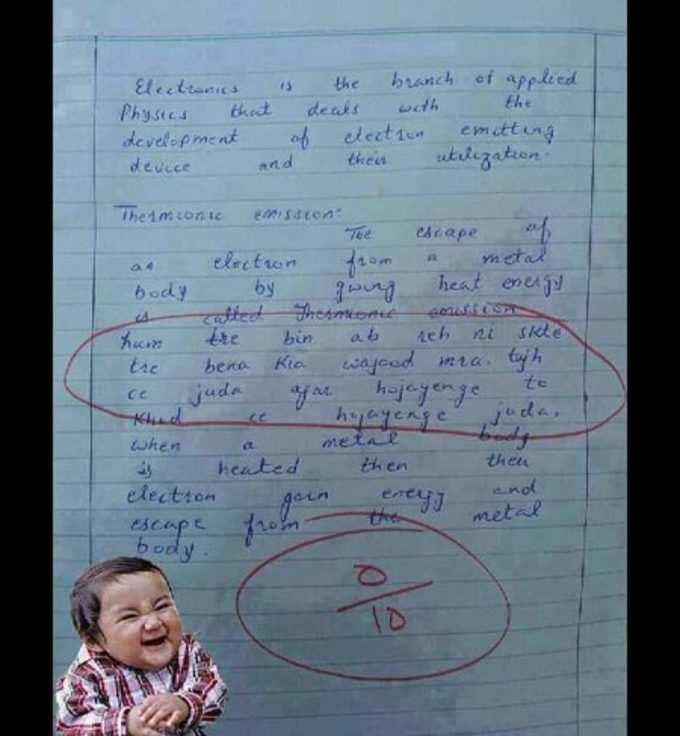 Electronics is the branch of applied
Physics that deals with the
development of electron emitting
device and their utilization.
Thermionic emission:
The escape of
an electron from a metal
body by giving heat energy
is called Thermionic emission
hum tre bin ab reh ni skte
tre bena kia wajood mra. tujh
ce juda agar hojayenge to
khud ce hojayenge juda.
when a metal body
is heated then then
electron gain energy and
escape from the metal
body.
0
10